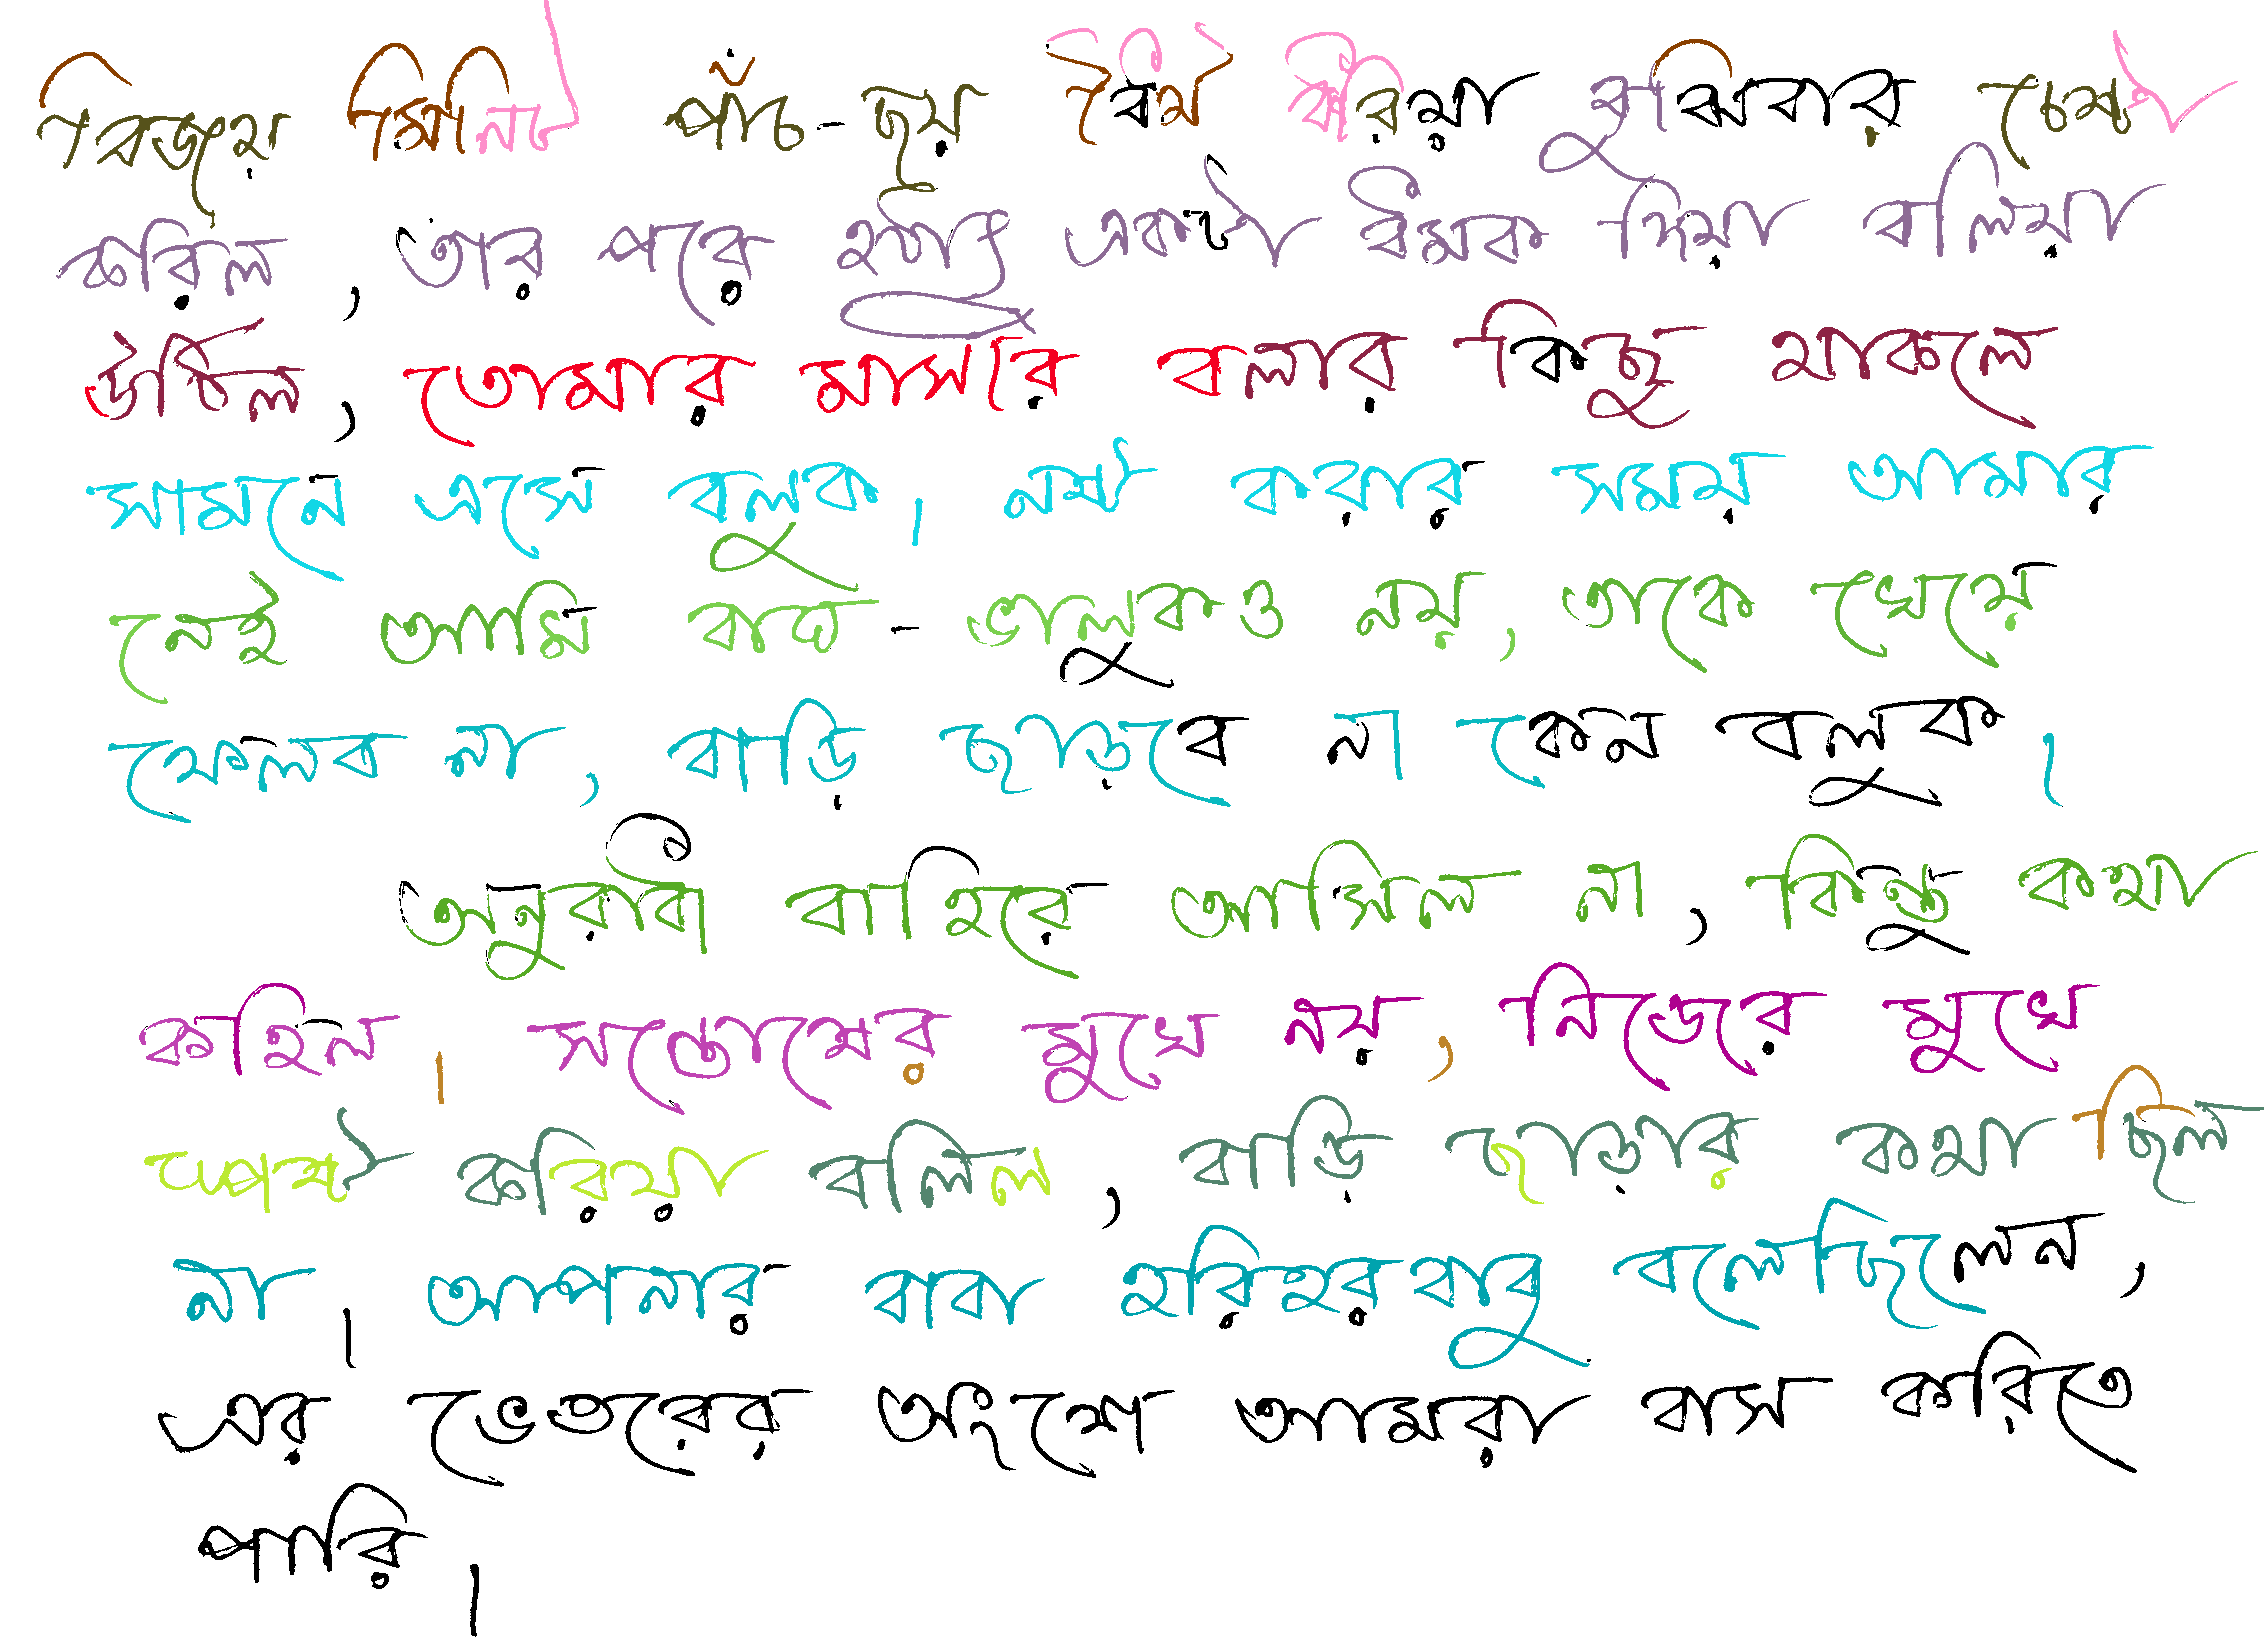 বিজয় মিনিট পাঁচ-ছয় ধৈর্য ধরিয়া বুঝিবার চেষ্টা
করিল, তার পরে হঠাৎ একটা ধমক দিয়া বলিয়া
উঠিল, তোমার মাসিরে বলার কিছু থাকলে
সামনে এসে বলুক। নষ্ট করার সময় আমার
নেই আমি বাঘ-ভালুকও নয়, তাকে খেয়ে
ফেলব না, বাড়ি ছাড়বে না কেন বলুক।
অনুরাধা বাহিরে আসিল না, কিন্তু কথা
কহিল। সন্তোষের মুখে নয়, নিজের মুখে
স্পষ্ট করিয়া বলিল, বাড়ি ছাড়ার কথা ছিল
না। আপনার বাবা হরিহরবাবু বলেছিলেন,
এর ভেতরের অংশে আমরা বাস করিতে
পারি।